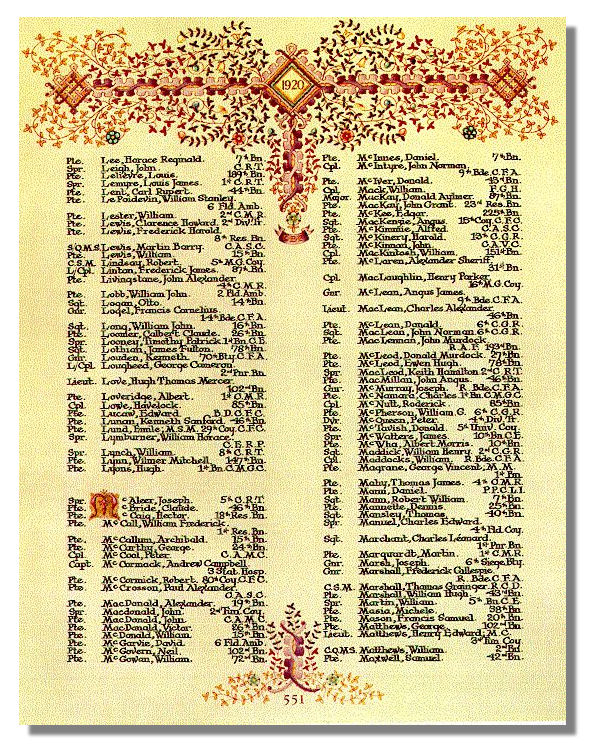 1920
Pte. Lee, Horace Reginald. 7th Bn.
Spr. Leigh, John. C.R.T.
Pte. Lelievre, Louis. 189th Bn.
Spr. Lemyre, Louis James. 1st C.R.T.
Pte. Lent, Carl Rupert. 44th Bn.
Pte. Le Poidevin, William Stanley.
6 Fld. Amb.
Pte. Lester, William. 2nd C.M.R.
Pte. Lewis, Clarence Howard. 2nd Div. Tr.
Pte. Lewis, Frederick Harold.
8th Res. Bn.
S.Q.M.S. Lewis, Martin Barry. C.A.S.C.
Pte. Lewis, William. 15th Bn.
C.S.M. Lindsay, Robert. 5th M.G. Coy.
L/Cpl. Linton, Frederick James. 87th Bn.
Pte. Livingstone, John Alexander.
4th C.M.R.
Pte. Lobb, William John. 2 Fld. Amb.
Sgt. Logan, Otto. 14th Bn.
Gnr. Logel, Francis Cornelius.
14th Bde. C.F.A.
Sgt. Long, William John. 16th Bn.
Pte. Loomer, Calbert Claude. 26th Bn.
Spr. Looney, Timothy Patrick. 1st Bn. C.E.
Sgt. Lothian, James Fulton. 78th Bn.
Gnr. Louden, Kenneth. 70th Bty. C.F.A.
L/Cpl. Lougheed, George Cameron.
2nd Pnr. Bn.
Lieut. Love, Hugh Thomas Mercer.
102nd Bn.
Pte. Loveridge, Albert. 1st C.M.R.
Cpl. Lowe, Havelock. 85th Bn.
Pte. Lucaw, Edward. B.D.C.F.C.
Pte. Lunan, Kenneth Sanford. 46th Bn.
Pte. Lund, Emile, M.S.M. 29th Coy. C.F.C.
Spr. Lymburner, William Horace.
C.E.R.P.
Spr. Lynch, William. 8th C.R.T.
Pte. Lynn, Wilmer Mitchell. 147th Bn.
Pte. Lyons, Hugh. 1st Bn. C.M.G.C.
Spr. Mc Aleer, Joseph. 5th C.R.T.
Pte. Mc Bride, Claude. 46th Bn.
Pte. Mc Caig, Hector. 18th Res. Bn.
Pte. Mc Call, William Frederick.
1st Res. Bn.
Pte. McCallum, Archibald. 15th Bn.
Pte. McCarthy, George. 24th Bn.
Cpl. McCool, Peter. C.A.M.C.
Capt. McCormack, Andrew Campbell.
Hosp.
Pte. McCormick, Robert. 80th Coy. C.F.C.
Pte. McCrosson, Paul Alexander.
C.A.S.C.
Pte. MacDonald, Alexander. 19th Bn.
Spr. Macdonald, John. 2nd Tun. Coy.
Pte. MacDonald, John. C.A.M.C.
Pte. MacDonald, Victor. 26th Bn.
Pte. McDonald, William. 15th Bn.
Pte. McGarvie, David. 6 Fld. Amb.
Pte. McGovern, Neil. 102nd Bn.
Pte. McGowan, William. 72nd Bn.
Pte. McInnes, Daniel. 7th Bn.
Cpl. McIntyre, John Norman.
9th Bde. C.F.A.
Pte. McIver, Donald. 43rd Bn.
Cpl. Mack, William. F.G.H.
Major. MacKay, Donald Aylmer. 87th Bn.
Pte. MacKay, John Grant. 23rd Res. Bn.
Pte. McKee, Edgar. 225th Bn.
Sgt. MacKenzie, Angus. 15th Coy. C.F.C.
Pte. McKimmie, Alfred. C.A.S.C.
Sgt. McKinery, Harold. 13th C.G.R.
Pte. McKinnan, John. C.A.V.C.
Cpl. McKintosh, William. 151st Bn.
Pte. McLaren, Alexander Sheriff.
31st Bn.
Cpl. MacLaughlin, Henry Parker.
16th M.G. Coy.
Gnr. McLean, Angus James.
9th Bde. C.F.A.
Lieut. MacLean, Charles Alexander.
46th Bn.
Pte. McLean, Donald. 6th C.G.R.
Sgt. MacLean, John Norman. 6th C.G.R.
Pte. MacLennan, John Murdock.
R.A.F. 193rd Bn.
Pte. McLeod, Donald Murdock. 27th Bn.
Pte. McLeod, Ewen Hugh. 78th Bn.
Spr. MacLeod, Keith Hamilton. 2nd C.R.T.
Pte. MacMillan, John Angus. 46th Bn.
Gnr. McMurray, Joseph. R. Bde. C.F.A.
Pte. McNamara, Charles. 1st Bn. C.M.G.C.
Cpl. McNutt, Roderick. 85th Bn.
Pte. McPherson, William G. 6th C.G.R.
Dvr. McQueen, Peter. 4th Div. Tr.
Pte. McTavish, Donald. 5th Univ. Coy.
Spr. McWatters, James. 10th Bn. C.E.
Pte. McWha, Albert Morris. 10th Bn.
Sgt. Maddick, William Henry. 2nd C.G.R.
Cpl. Maddocks, William. R. Bde. C.F.A.
Pte. Magrane, George Vincent, M.M.
1st Bn.
Pte. Mahy, Thomas James. 4th C.M.R.
Pte. Mann, Daniel. P.P.C.L.I.
Sgt. Mann, Robert William. 7th Bn.
Pte. Mannette, Dennis. 25th Bn.
Sgt. Mansley, Thomas. 40th Bn.
Spr. Manuel, Charles Edward.
4th Fld. Coy.
Sgt. Marchant, Charles Leonard.
1st Pnr. Bn.
Pte. Marquardt, Martin. 1st C.M.R.
Gnr. Marsh, Joseph. 6th Siege. Bty.
Gnr. Marshall, Frederick Gillespie.
R. Bde. C.F.A.
C.S.M. Marshall, Thomas Grainger. R.C.D.
Pte. Marshall, William Hugh. 43rd Bn.
Spr. Martin, William. 5th Bn. C.E.
Pte. Masia, Michele. 38th Bn.
Pte. Mason, Francis Samuel. 20th Bn.
Pte. Matthews, George. 102nd Bn.
Lieut. Matthews, Henry Edward, M.C.
3rd Tun. Coy.
C.Q.M.S. Matthews, William. 2nd Bd.
Pte. Maxwell, Samuel. 42nd Bn.
551